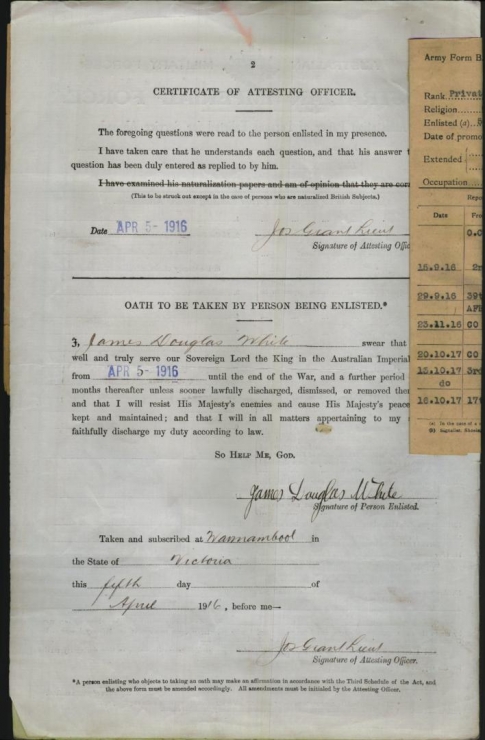 2
CERTIFICATE OF ATTESTING OFFICER.
The foregoing questions were read to the person enlisted in my presence.
I have taken care that he understands each question, and that his answer
question has been duly entered as replied to by him.
I have examined his naturalization papers and am of opinion that they are
(This to be struck out except in the case of persons who are naturalized British Subjects.)
Date APR 5- 1916
Jos Grant Lieut
Signature of Attesting
OATH TO BE TAKEN BY PERSON BEING ENLISTED.*
3, James Douglas White swear that
well and truly serve our Sovereign Lord the King in the Australian Imperial
from APR 5- 1916 until the end of the War, and a further period
months thereafter unless sooner lawfully discharged, dismissed, or removed
and that I will resist His Majesty's enemies and cause His Majesty's peace
kept and maintained; and that I will in all matters appertaining to my
faithfully discharge my duty according to law.
SO HELP ME, GOD.
James Douglas White
Signature of Person Enlisted.
Taken and subscribed at Warrnambool in
the State of Victoria
this fifth day of
April 1916, before me—
Jos Grant Lieut
Signature of Attesting Officer.
*A person enlisting who objects to taking an oath may make an affirmation in accordance with the Third Schedule of the Act, and
the above form must be amended accordingly. All amendments must be initialed by the Attesting Officer.
Army Form B
Rank Privat
Religion
Enlisted (a)
Date of promo
Extended
Occupation
Repo
Date Fro
O.C
15.9.16
29.9.16 39t
23.11.16 CO
20.10.17 CO
15.10.17 3rd
do
16.10.17 17t
(a) In the case of a